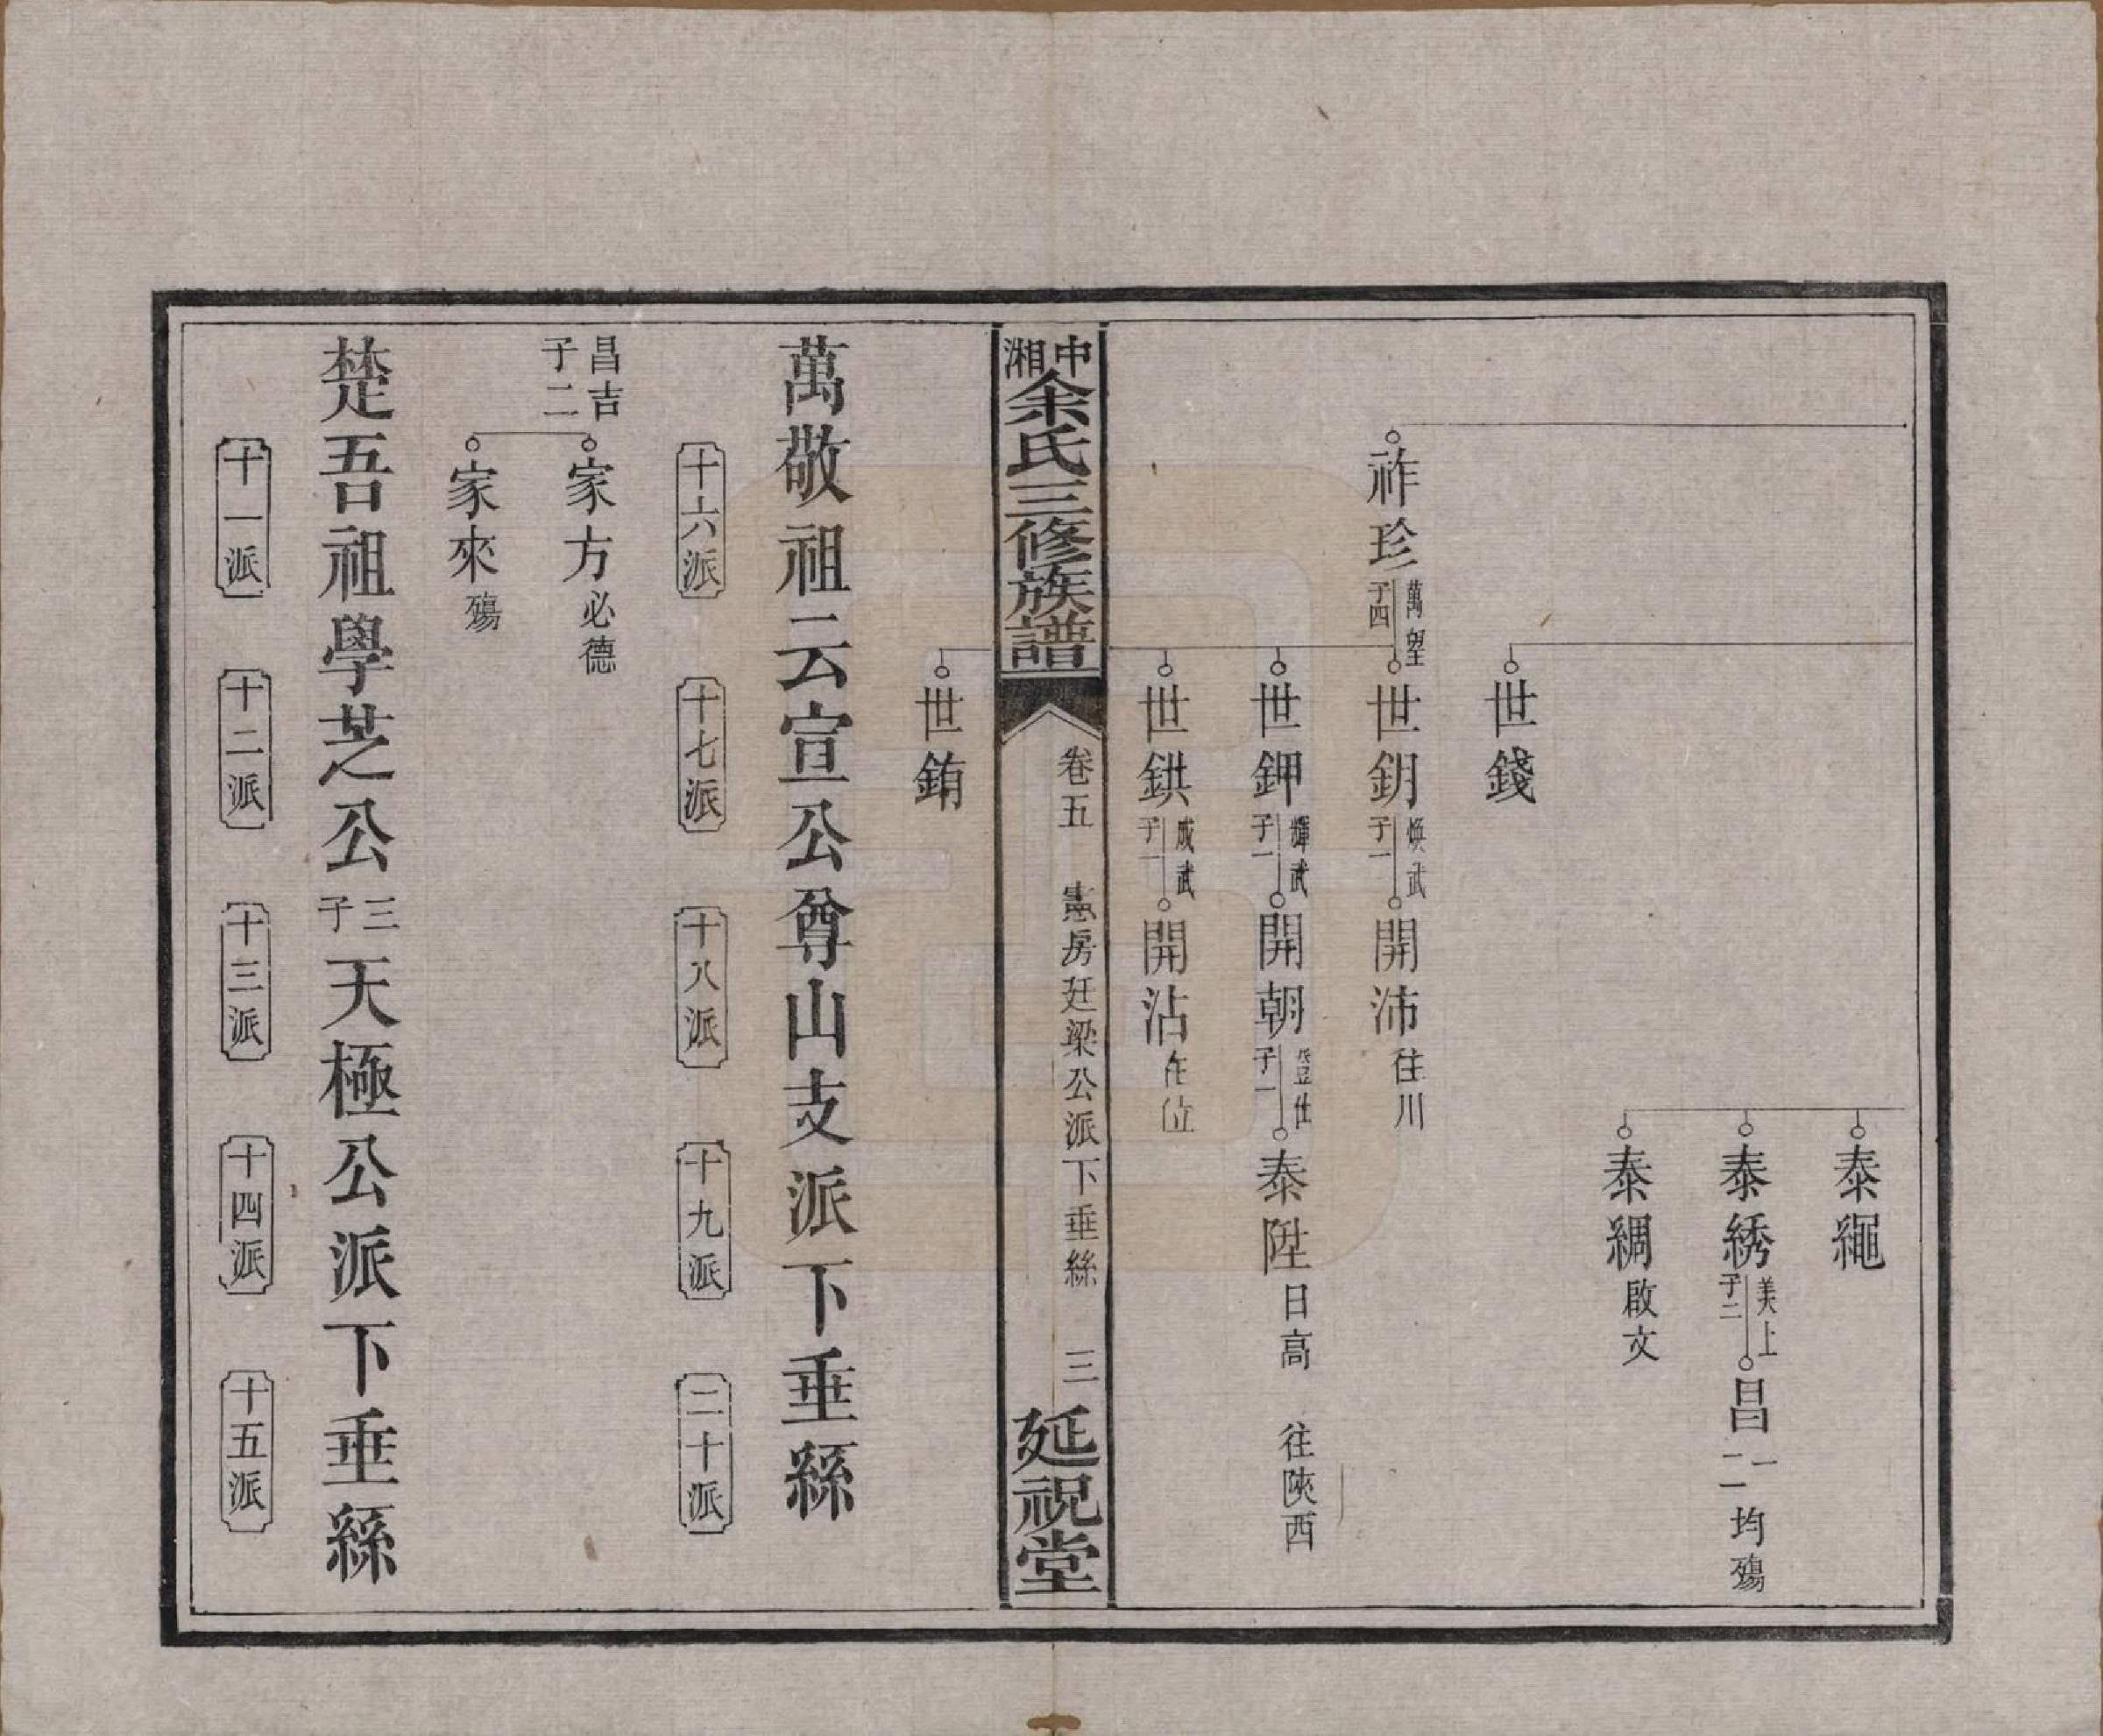 泰繩
泰綉 美上 子二 昌 一 二 均殤
泰綢 啟文
世錢
祚珍 萬望 子四 世鈅 煥武 子一 開沛 往川
世鉀 輝武 子一 開朝 登仕 子一 泰陞 日高 往陝西
世鉷 成武 子一 開沾 在位
中湘余氏三修族譜 卷五 憲房廷梁公派下垂絲 三 延祝堂
世銪
萬敬祖云宣公尊山支派下垂絲
十六派 十七派 十八派 十九派 二十派
昌吉 子二 家方 必德
家來 殤
楚吾祖學芝公三子天極公派下垂絲
十一派 十二派 十三派 十四派 十五派